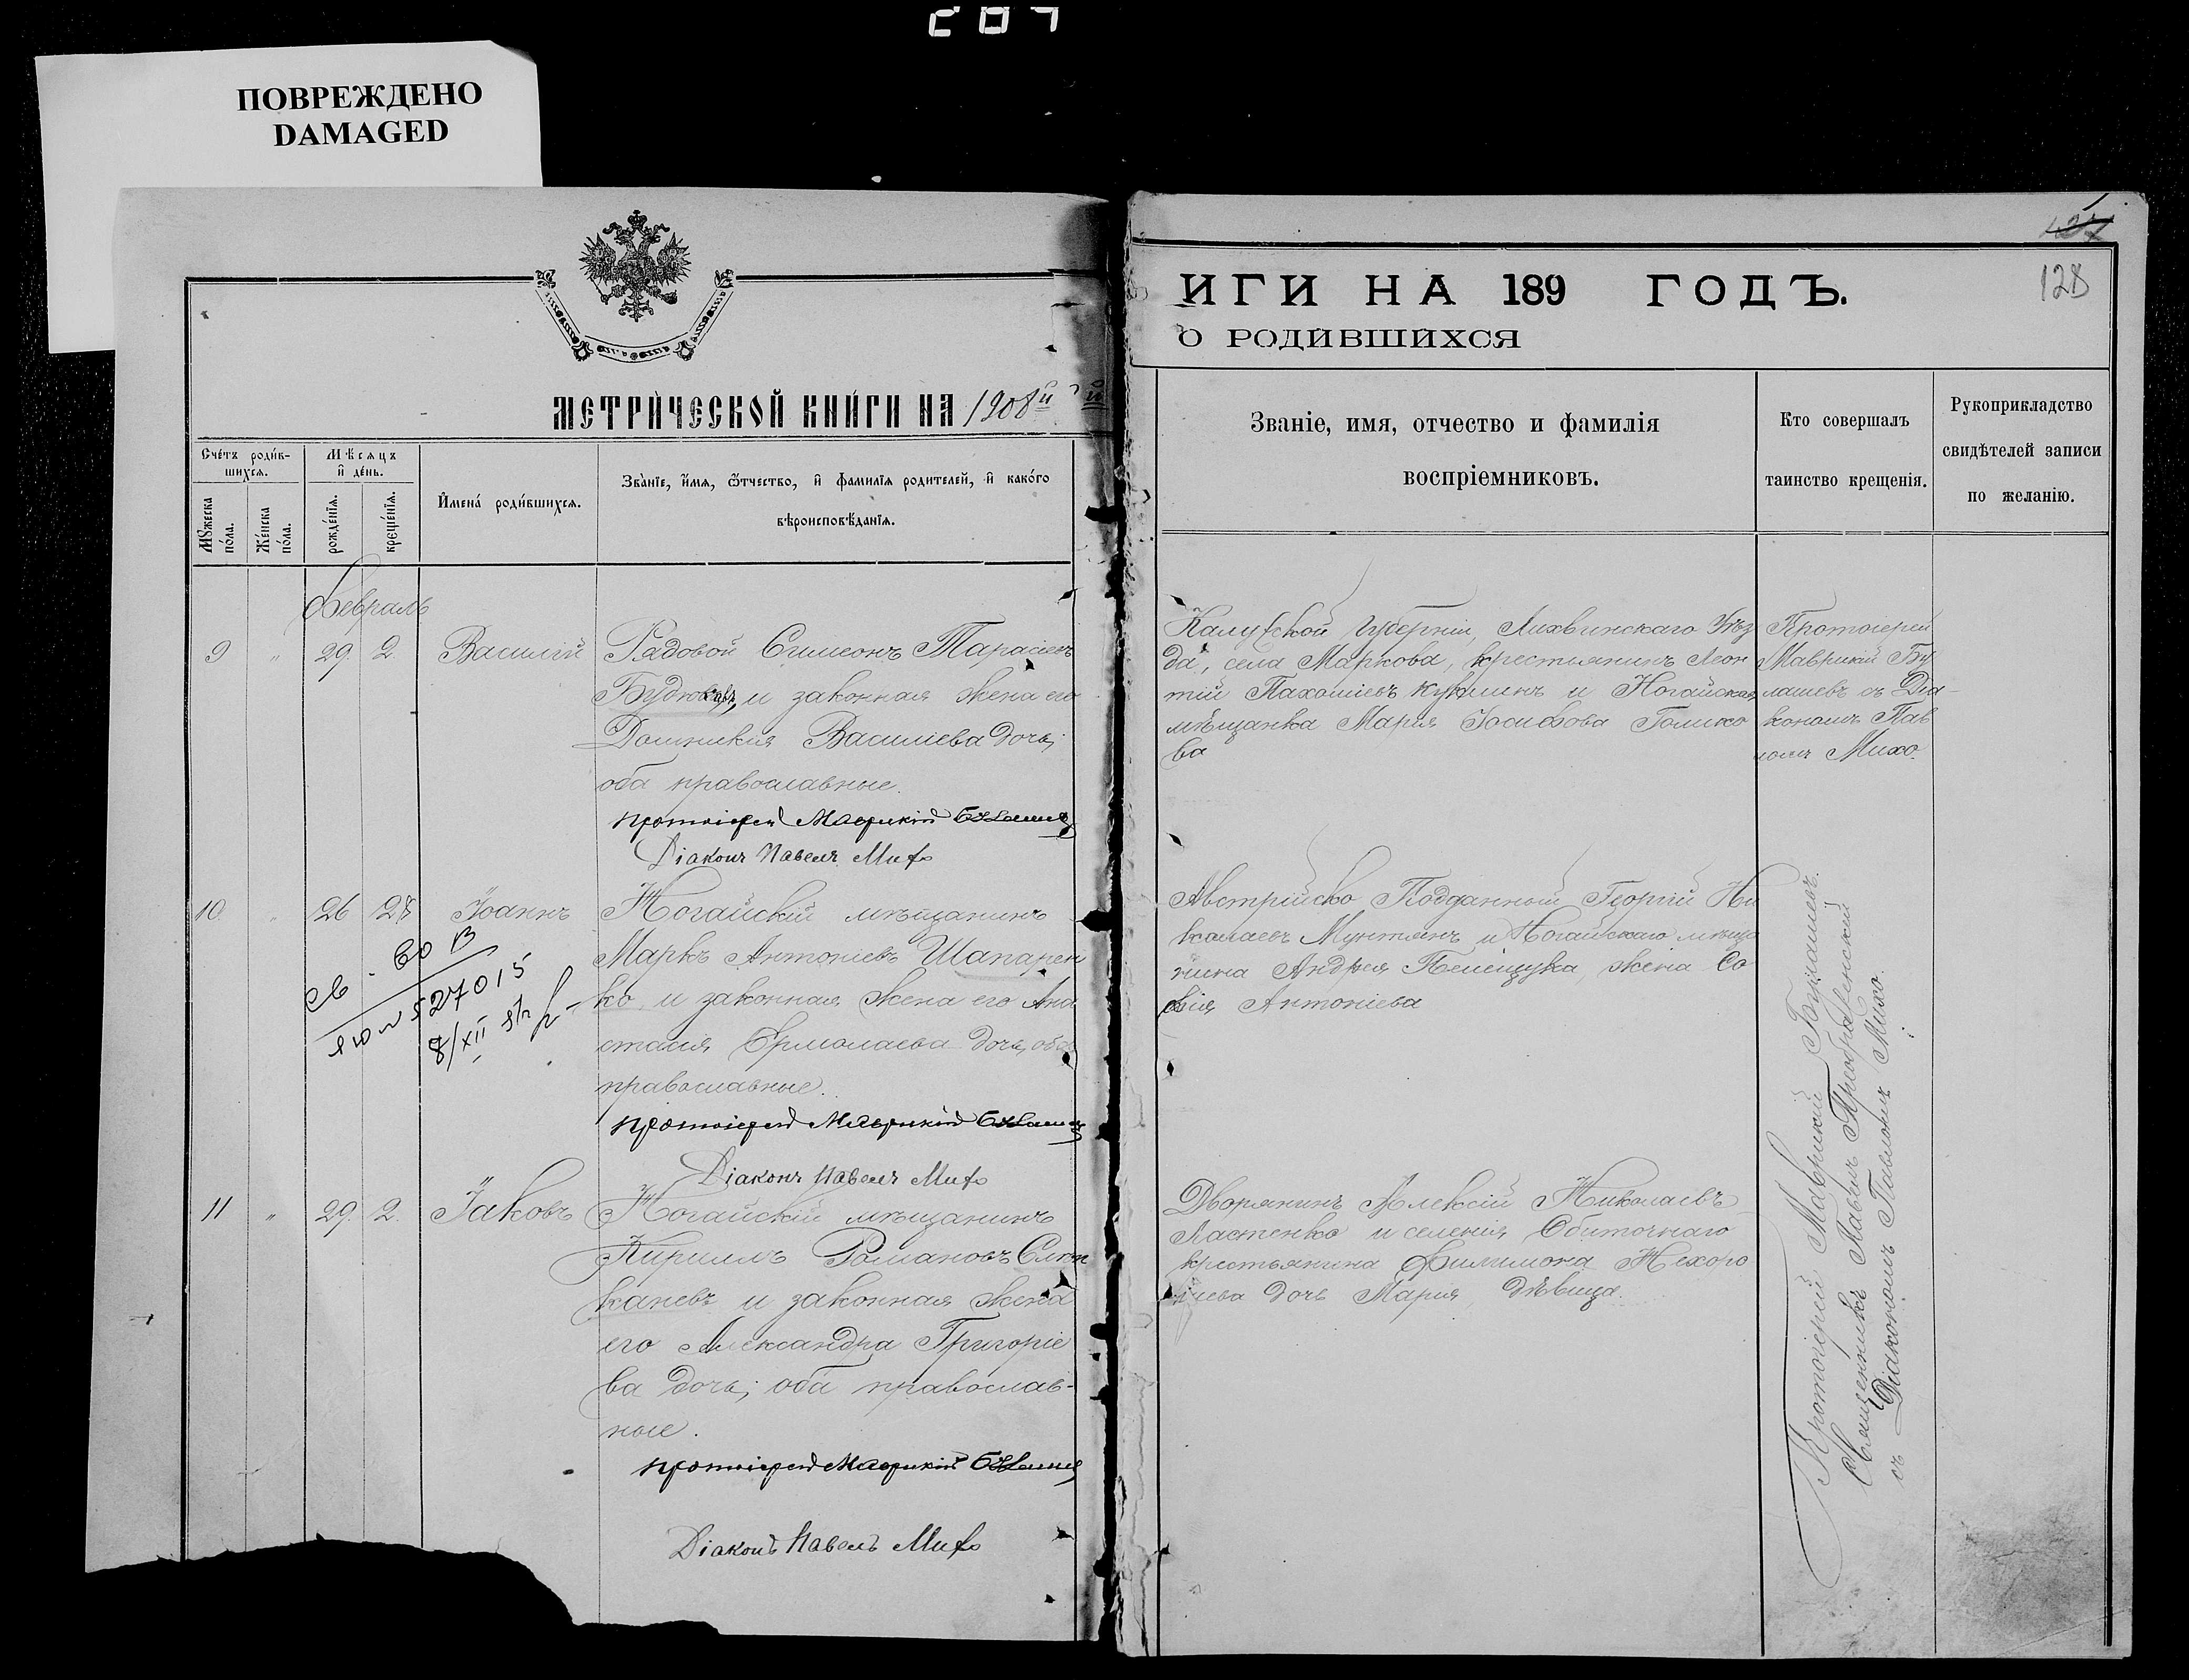 207
ПОВРЕЖДЕНО
DAMAGED
МЕТРИЧЕСКОЙ КНИГИ НА 1908й
Счетъ родив-
шихся.
Мужеска пола.
Женска пола.
Мѣсяцъ
и день.
рожденія.
крещенія.
Имена родившихся.
Званіе, имя, отчество, и фамилія родителей, и какого
вѣроисповѣданія.
Февраль
9 " 29. 2. Василій
Рядовой Симеонъ Тарасіевъ
и законная жена его
Василіева дочь;
оба православные.
протоіерей Маврикій
Діаконъ Павелъ Михо
10 " 26 28 Іоаннъ
Ногайскій мѣщанинъ
Маркъ Антоніевъ Шапарен
ко и законная жена его Ана
стасія Ермолаева дочь, оба
православные.
протоіерей Маврикій
Діаконъ Павелъ Михо
св-во
527015
8/XII
11 " 29. 2. Іаковъ
Ногайскій мѣщанинъ
Кириллъ Романовъ
каневъ и законная жена
его Александра Григоріе
ва дочь; оба православ-
ные.
протоіерей Маврикій
Діаконъ Павелъ Михо
127
128
ИГИ НА 189 ГОДЪ.
О РОДИВШИХСЯ
Званіе, имя, отчество и фамилія
воспріемниковъ.
Кто совершалъ
таинство крещенія.
Рукоприкладство
свидѣтелей записи
по желанію.
Калужской Губерніи, Лихвинскаго Уѣз
да, села Маркова, крестьянинъ Леон
тій Пахоміевъ и Ногайская
мѣщанка Марія Іосифова Голико
ва
Протоіерей
Маврикій Бу
лашевъ съ Діа-
кономъ Пав
ломъ Михо.
Австрійско Подданный Георгій Ни
колаевъ Мунтянъ и Ногайскаго мѣща
нина Андрея жена Со
фія Антоніева
Дворянинъ Алексій Николаевъ
Ластенко и селенія Обиточнаго
крестьянина Филимона Нехоро
шева дочь Марія, дѣвица.
Протоіерей Маврикій Булашевъ.
Священникъ Павелъ Преображенскій
съ Діакономъ Павломъ Михо.